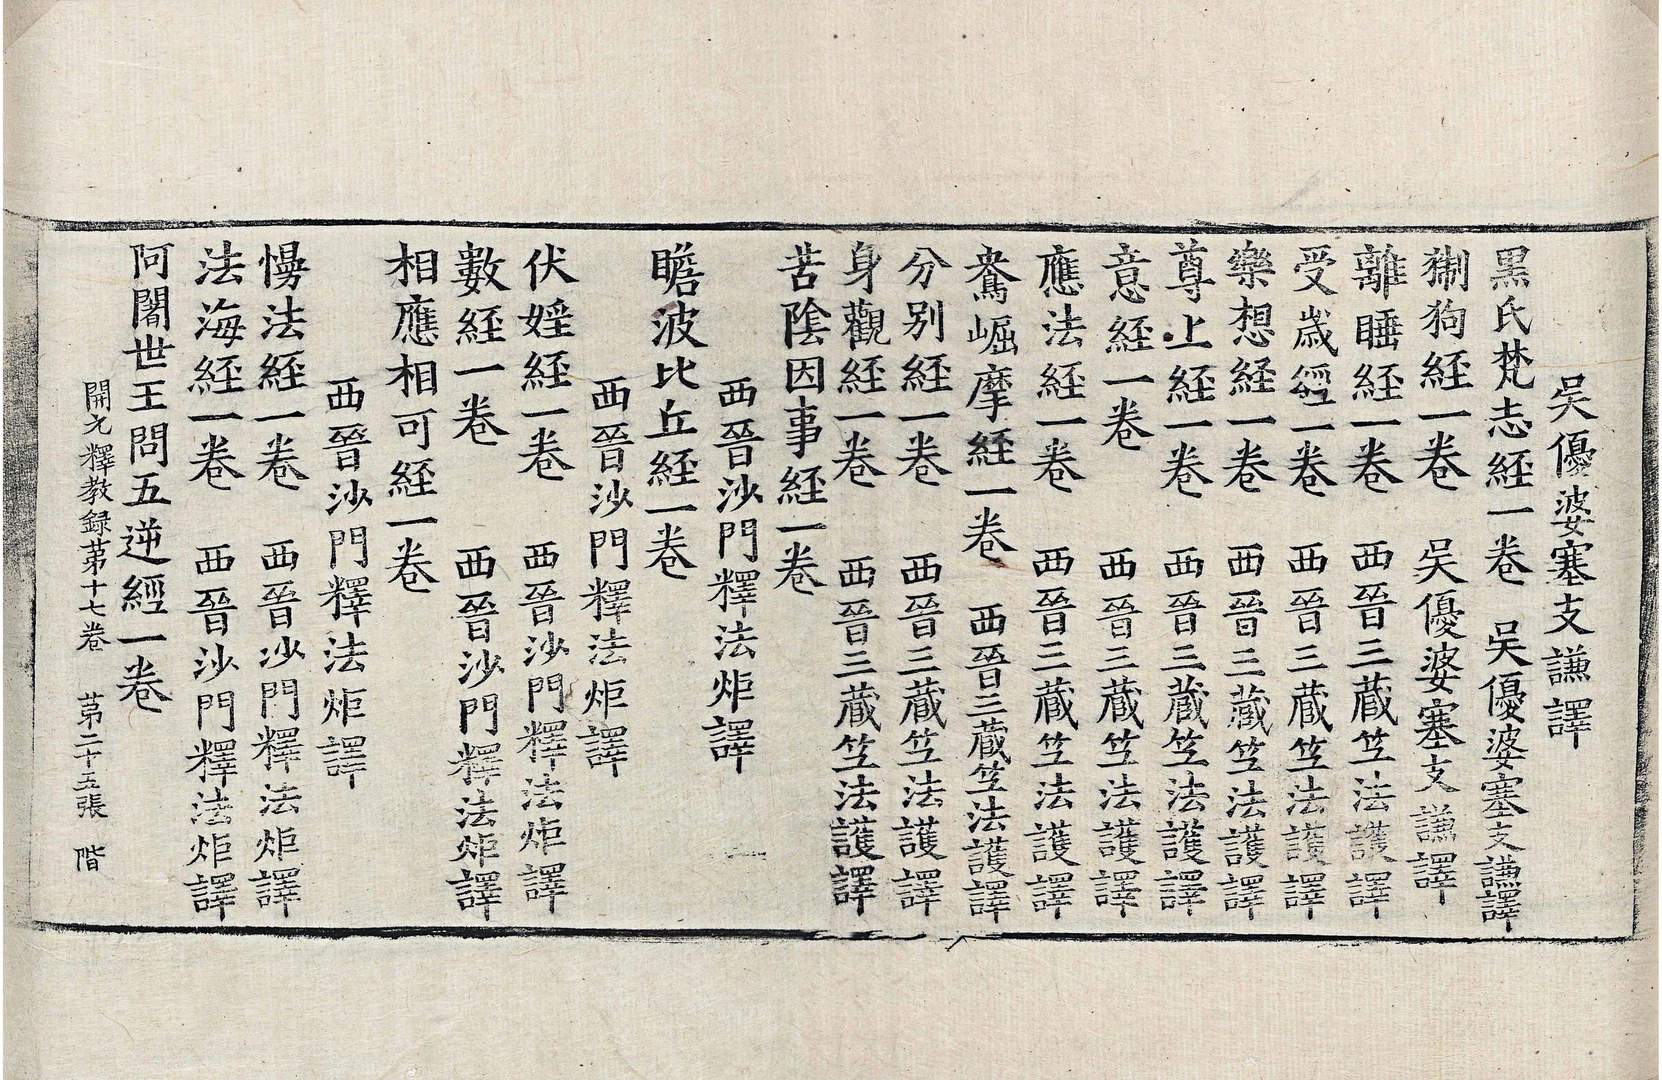 吳優婆塞支謙譯
黑氏梵志経一卷　吳優婆塞支謙譯
猘狗経一卷　吳優婆塞支謙譯
離睡経一卷　西晉三蔵竺法護譯
受歳經一卷　西晉三蔵竺法護譯
樂想経一卷　西晉三蔵竺法護譯
尊上経一卷　西晉三蔵竺法護譯
意経一卷　西晉三蔵竺法護譯
應法経一卷　西晉三蔵竺法護譯
鴦崛摩経一卷　西晉三蔵竺法護譯
分別経一卷　西晉三蔵竺法護譯
身觀経一卷　西晉三蔵竺法護譯
苦陰因事経一卷
西晉沙門釋法炬譯
瞻波比丘経一卷
西晉沙門釋法炬譯
伏婬経一卷　西晉沙門釋法炬譯
數経一卷　西晉沙門釋法炬譯
相應相可経一卷
西晉沙門釋法炬譯
慢法経一卷　西晉沙門釋法炬譯
法海経一卷　西晉沙門釋法炬譯
阿闍世王問五逆經一卷
開元釋教録苐十七卷　苐二十五張　階